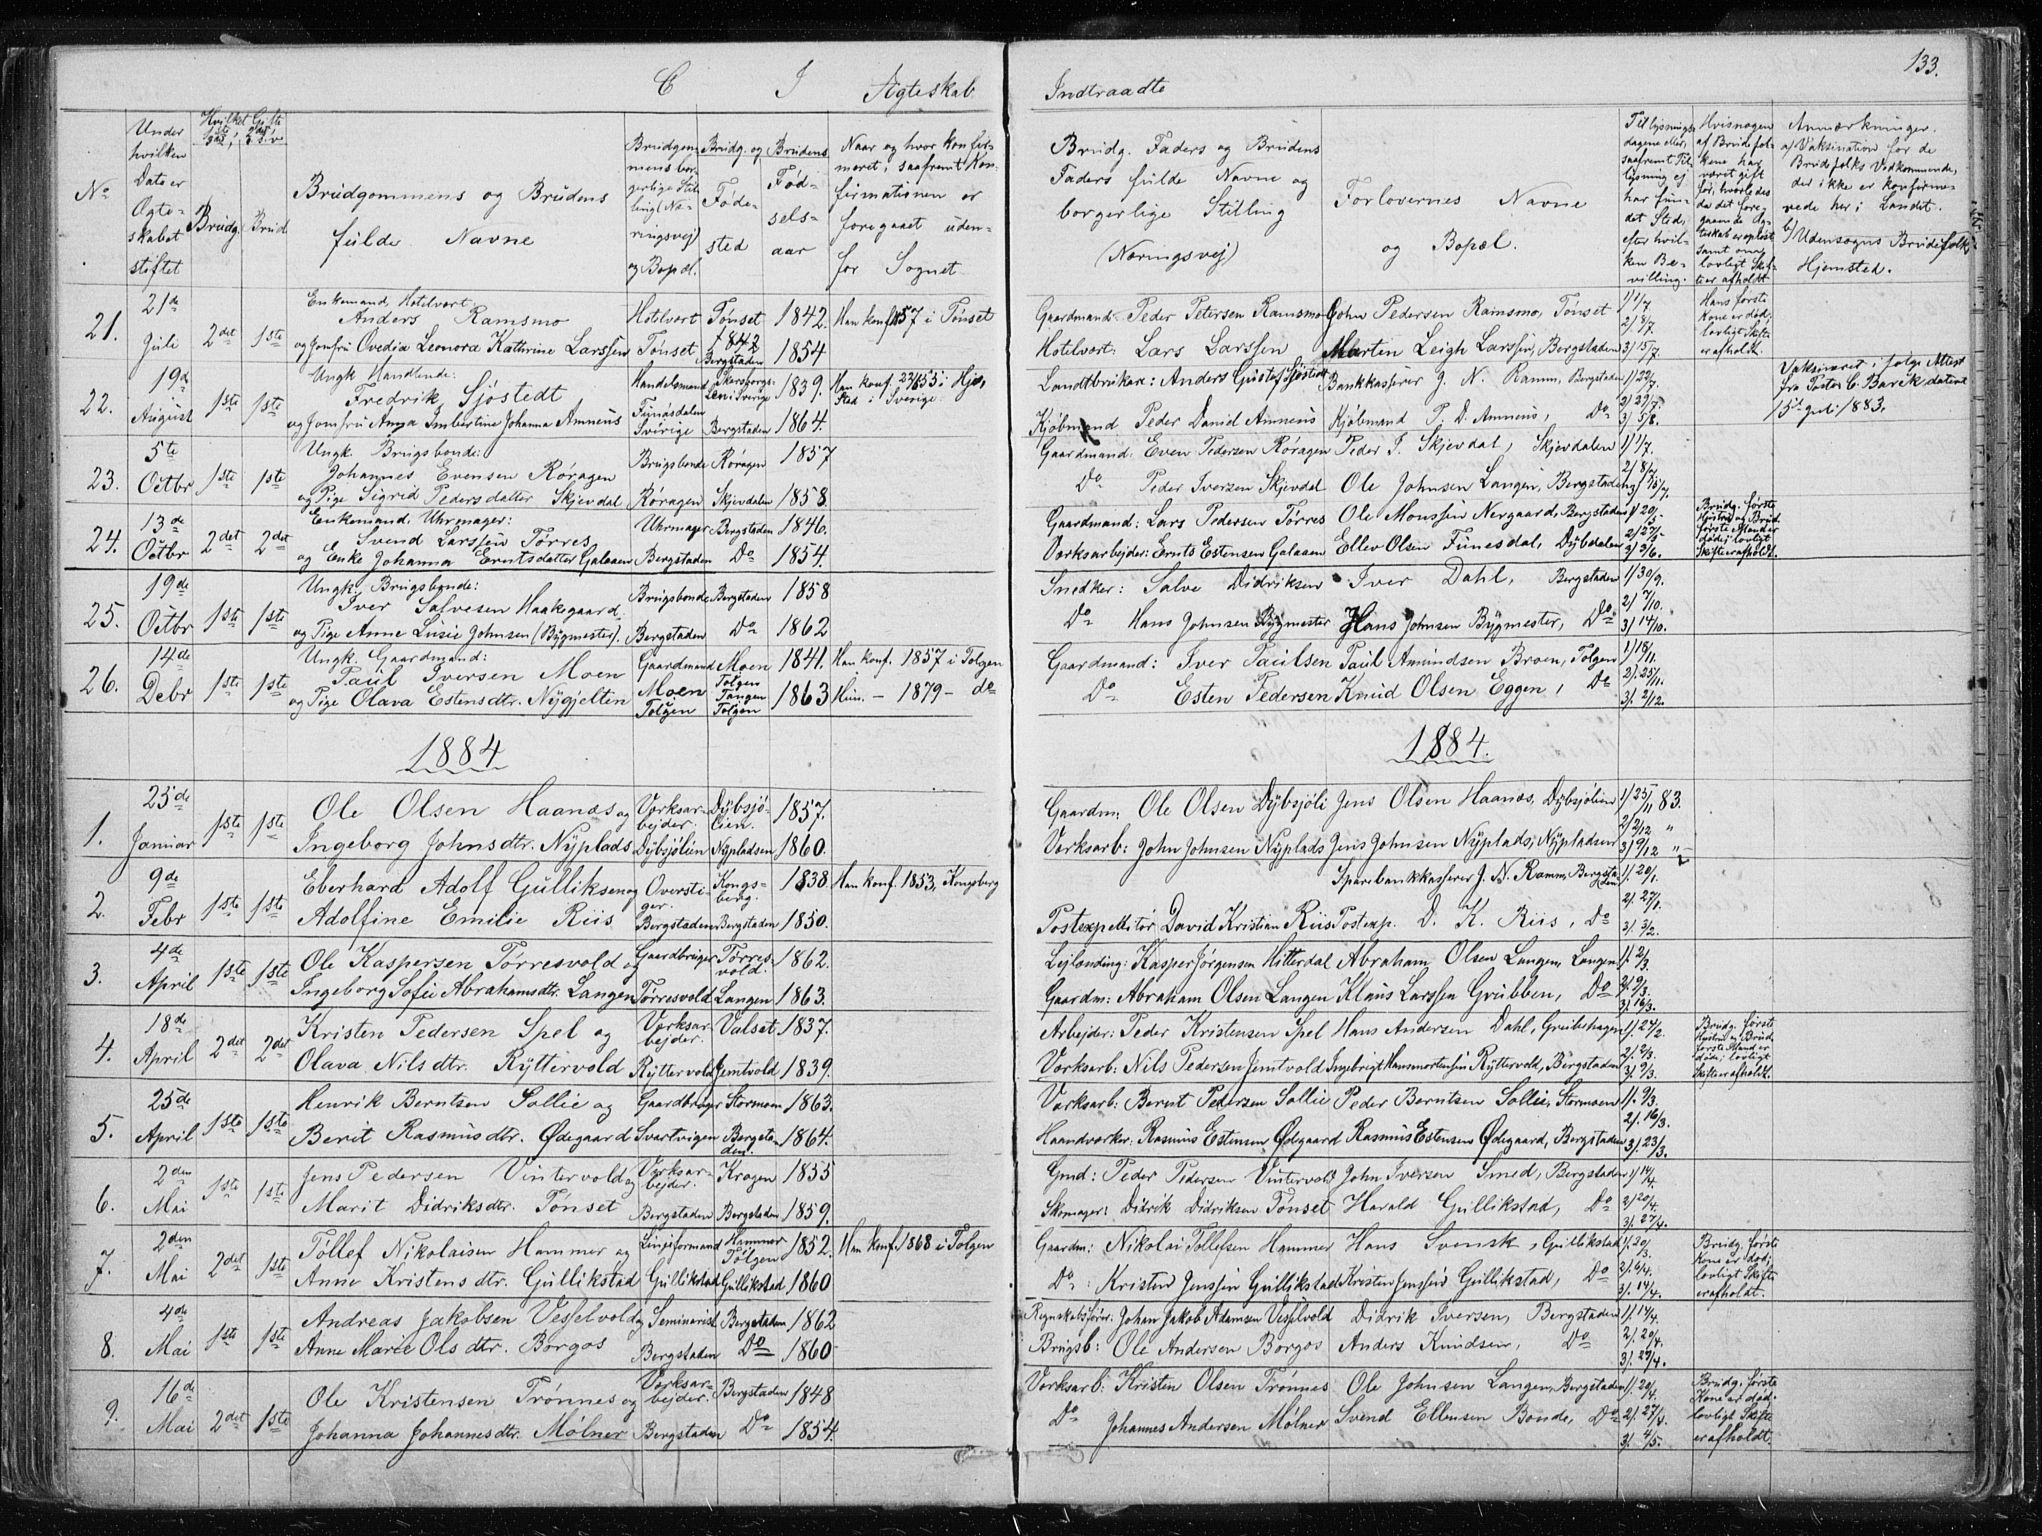 133.
C I Ægteskab Indtraadte
No
Under hvilken Dato er Ægteskabet stiftet
Hvilket Gifte 1ste, 2det o.s.v.
Brudg. Brud
Brudgommens og Brudens fulde Navne
Brudgommens borgerlige Stilling (Næringsvej) og Bopæl.
Brudg. og Brudens
Fødested
Fødselsaar
Naar og hvor konfirmeret, saafremt Konfirmationen er foregaaet udenfor Sognet
Brudg. Faders og Brudens Faders fulde Navne og borgerlige Stilling (Næringsvej)
Forlovernes Navne og Bopæl.
Tillysningsdagene eller, saafremt Tillysning ej har fundet Sted, efter hvilken Bevilling.
Hvis nogen af Brudefolkene har været gift før, hvorledes da det foregaaende Ægteskab er opløst samt om lovligt Skifte er afholdt
Anmærkninger.
a/ Vaksination for de Brudefolks Vedkommende, der ikke er konfirmerede her i Landet.
b/ Udensogns Brudefolks Hjemsted.
21. 21de Juli 2det 1ste
Enkemand, Hotelvært: Anders Ramsmo
og Jomfru Ovedia Leonora Kathrine Larssen
Hotelvært Tønset
Tønset 1842. Han konf. 1857 i Tønset
Bergstaden 1854
Gaardmand Peder Petersen Ramsmo John Pedersen Ramsmo, Tønset 1) 1/7
Hotelvært: Lars Larssen Morten Leigh Larssen, Bergstaden 2) 8/7 3) 15/7.
Hans første Kone er død, lovligt Skifte er afholdt.
22. 19de August 1ste 1ste
Ungk. Handlende: Fredrik Sjöstedt
og Jomfru Anna Imbertine Johanna Amneus
Handelsmand Funäsdalen Sverige
1839. Han konf. i Sverige
Bergstaden 1864.
Landtbrikare: Anders Gustaf Sjöstedt Bankkasserer J. N. Ramm, Bergstaden 1) 22/7
Kjøbmand Peder David Amneus Kjøbmand P. D. Amneus, Do 2) 29/7. 3) 5/8.
Vaksineret, ifølge Attest fra Pastor C. Barck, dateret 15de Juli 1883.
23. 5te Octbr 1ste 1ste
Ungk. Brugsbonde: Johannes Evensen Røragen
og Pige Sigrid Pedersdatter Skjevdal
Brugsbonde Røragen 1857
Røragen Skjevdalen 1858.
Gaardmand: Even Pedersen Røragen Peder J. Skjevdal, Skjevdalen 1) 1/7.
Do Peder Iversen Skjevdal Ole Johnsen Langen, Bergstaden 2) 8/7 3) 15/7.
24. 13de Octbr 2det 2det
Enkemand, Uhrmager: Svend Larssen Tørres
og Enke Johanna Erntsdatter Galaaen
Uhrmager Bergstaden 1846.
Bergstaden Do 1854.
Gaardmand: Lars Pedersen Tørres Ole Monssen Nergaard, Bergstaden 1) 20/5.
Værksarbejder: Ernts Estensen Galaaen Ellev Olsen Funesdal, Dybdalen 2) 27/5 3) 3/6.
Brudg. første Hustru og Bruds første Mand er døde; lovligt Skifte er afholdt.
25. 19de Octbr 1ste 1ste
Ungk. Brugsbonde: Iver Salvesen Haakegaard
og Pige Anne Lusie Johnsen (Bygmester).
Brugsbonde Bergstaden 1858
Bergstaden Do 1862
Snedker: Salve Didriksen Iver Dahl, Bergstaden 1) 30/9.
Do Hans Johnsen Bygmester Hans Johnsen Bygmester, Do 2) 7/10. 3) 14/10.
26. 14de Debr 1ste 1ste
Ungk. Gaardmand: Paul Iversen Moen
og Pige Olava Estensdtr. Nygjelten
Gaardmand Moen Tolgen 1841. Han konf. 1857 i Tolgen
Moen Tolgen Tangen Tolgen 1863 Hun. - 1879 - do
Gaardmand: Iver Paulsen Paul Amundsen Broen, Tolgen 1) 18/11.
Do Esten Pedersen Knud Olsen Eggen, Do 2) 25/11. 3) 2/12.
1884 1884.
1. 25de Januar 1ste 1ste
Ole Olsen Haanæs og
Ingeborg Johnsdtr. Nyplads
Værksarbejder. Dybsjølien. 1857.
Dybsjølien Nypladsen 1860.
Gaardm: Ole Olsen Dybsjøli Jens Olsen Haanæs, Dybsjølien 1) 25/11 83.
Værksarb: John Johnsen Nyplads Jens Johnsen Nyplads, Nypladsen 2) 2/12 " 3) 9/12 "
2. 9de Febr 1ste 1ste
Eberhard Adolf Gulliksen og
Adolfine Emilie Riis
Overstiger. Kongsberg. 1838. Han konf. 1853, Kongsberg
Bergstaden Bergstaden 1850.
Sparebankkasserer J. N. Ramm, Bergstaden 1) 20/1.
Postexpeditør David Kristian Riis Postexp. D. K. Riis, Do 2) 27/1. 3) 3/2.
3. 4de April 1ste 1ste
Ole Kaspersen Tørresvold og
Ingeborg Sofie Abrahamsdtr. Langen
Gaardbruger Tørresvold. 1862.
Tørresvold Langen 1863.
Lejlænding: Kasper Jørgensen Hitterdal Abraham Olsen Langen, Langen 1) 2/3.
Gaardm: Abraham Olsen Langen Klaus Larssen Grubben, Do 2) 9/3. 3) 16/3.
4. 18de April 2det 2det
Kristen Pedersen Spel og
Olava Nilsdtr. Ryttervold
Værksarbejder. Valset 1837.
Ryttervold Jemtvold 1839.
Arbejder: Peder Kristensen Spel Hans Andersen Dahl, 1) 27/2.
Værksarb: Nils Pedersen Jemtvold Ingebrigt Hansmortensen Ryttervold, Bergstaden 2) 2/3. 3) 9/3.
Brudg. første Hustru og Bruds første Mand er døde; lovligt Skifte er afholdt.
5. 25de April 1ste 1ste
Henrik Berntsen Sollie og
Berit Rasmusdtr. Ødegaard
Gaardbruger Stormoen 1863.
Svartvigen Bergstaden. 1864.
Værksarb: Bernt Pedersen Sollie Peder Berntsen Sollie, Stormoen 1) 9/3.
Haandværker: Rasmus Estensen Ødegaard Rasmus Estensen Ødegaard, Bergstaden 2) 16/3. 3) 23/3.
6. 2den Mai 1ste 1ste
Jens Pedersen Vintervold og
Marit Didriksdtr. Tønset
Værksarbejder. Kragen 1855
Bergstaden Bergstaden 1859.
Gmd: Peder Pedersen Vintervold John Iversen Smed, Bergstaden 1) 14/4.
Skomager: Didrik Didriksen Tønset Harald Gullikstad, Do 2) 20/4. 3) 27/4.
7. 2den Mai 2det 1ste
Tollef Nikolaisen Hammer og
Anne Kristensdtr. Gullikstad
Linjeformand Hammer Tolgen 1852. Han konf. 1868 i Tolgen
Gullikstad Gullikstad 1860
Gaardm: Nikolai Tollefsen Hammer Hans Svensk, Gullikstad 1) 20/3.
Do: Kristen Jenssen Gullikstad Kristen Jenssen Gullikstad, Do 2) 6/4. 3) 14/4.
Brudg. første Kone er død; lovligt Skifte er afholdt.
8. 4de Mai 1ste 1ste
Andreas Jakobsen Vesselvold og
Anne Marie Olsdtr. Borgos
Seminarist Bergstaden 1862
Bergstaden Do 1860
Regnskabsfører: Johan Jakob Adamsen Vesselvold Didrik Iversen, Bergstaden 1) 14/4.
Brugsb: Ole Andersen Borgos Anders Knudsen, Do 2) 20/4. 3) 27/4.
9. 16de Mai 2det 1ste
Ole Kristensen Trønnes og
Johanna Johannesdtr. Mølner
Værksarbejder. Bergstaden 1848
Bergstaden Do 1854.
Værksarb: Kristen Olsen Trønnes Ole Johnsen Langen, Bergstaden 1) 20/4.
Do Johannes Andersen Mølner Svend Ellensen Bonde, Do 2) 27/4. 3) 4/5.
Brudg. første Kone er død. lovligt Skifte er afholdt.